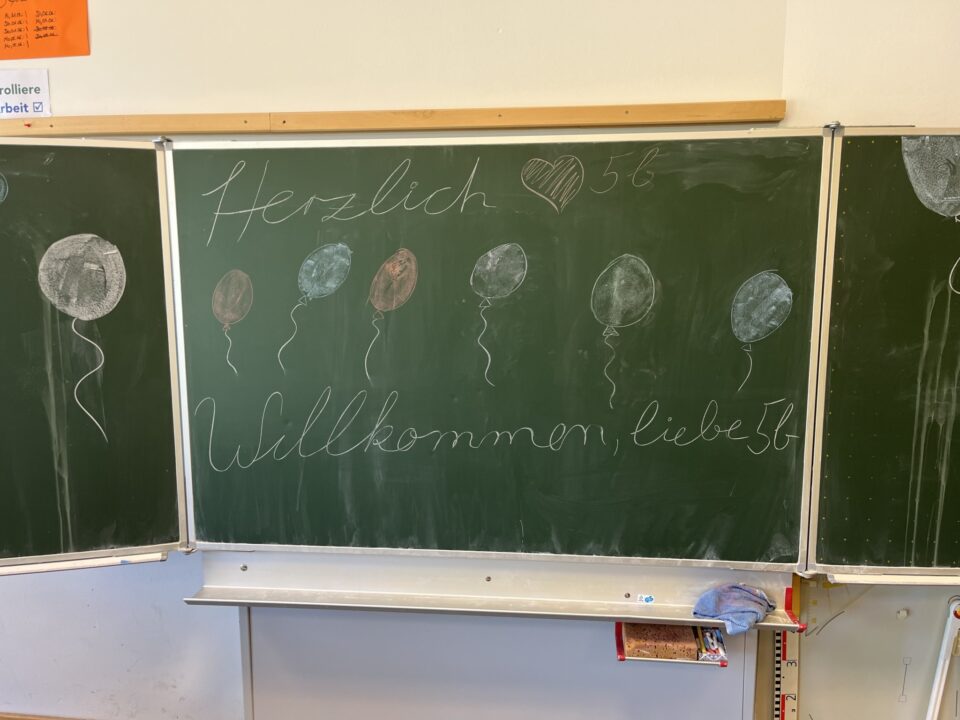 rolliere
rbeit
Herzlich 5b
Willkommen, liebe 5b
3
2